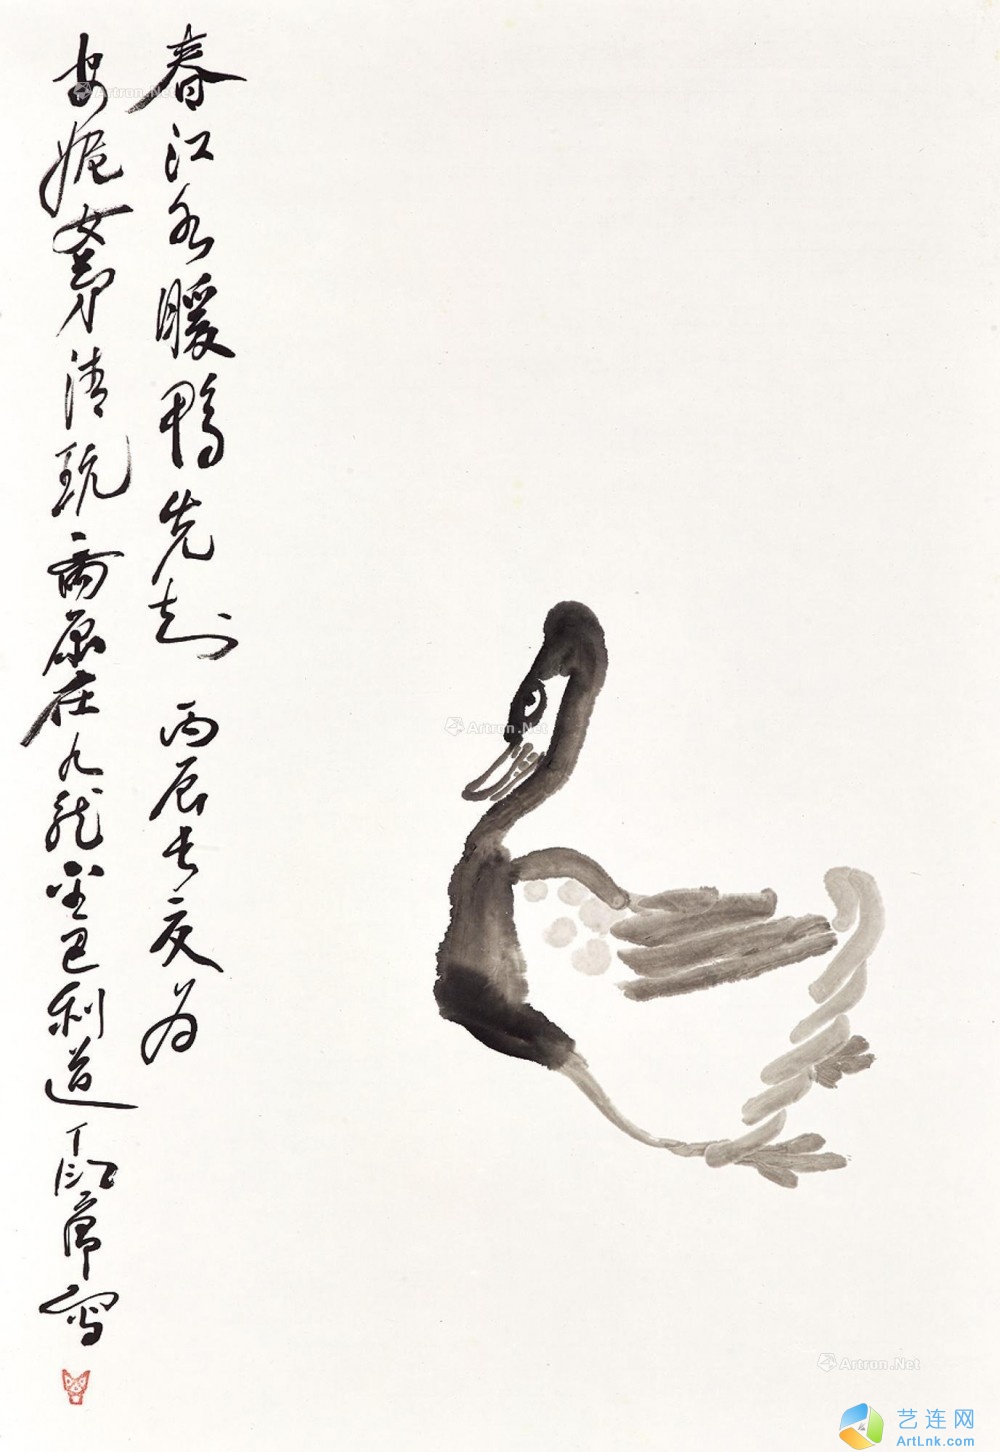 春江水暖鴨先知 丙辰長夏為
安 女弟清玩 在九龍金巴利道 丁衍庸寫
Artron.Net
Artron.Net
Artron.Net
艺连网
ArtLnk.com